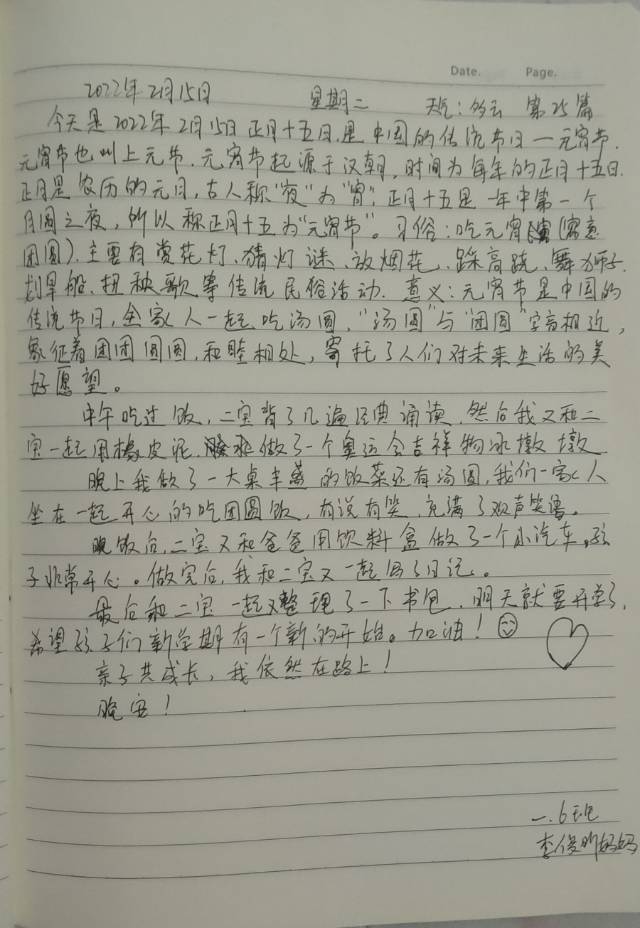 Date. Page.
2022年2月15日 星期二 天气:多云 第25篇
今天是2022年2月15日正月十五日,是中国的传统节日一元宵节.
元宵节也叫上元节.元宵节起源于汉朝,时间为每年的正月十五日.
正月是农历的元月,古人称"夜"为"宵",正月十五是一年中第一个
月圆之夜,所以称正月十五为"元宵节"。习俗:吃元宵(寓意
团圆).主要有赏花灯、猜灯谜、放烟花、踩高跷、舞狮子.
划旱船、扭秧歌等传统民俗活动.意义:元宵节是中国的
传统节日,全家人一起吃汤圆,"汤圆"与"团圆"字音相近,
象征着团团圆圆,和睦相处,寄托了人们对未来生活的美
好愿望。
中午吃过饭,二宝背了几遍经典诵读.然后我又和二
宝一起用橡皮泥做了一个奥运会吉祥物冰墩墩
晚上我做了一大桌丰盛的饭菜还有汤圆,我们一家人
坐在一起开心的吃团圆饭,有说有笑,充满了欢声笑语。
晚饭后,二宝又和爸爸用饮料盒做了一个小汽车,孩
子非常开心。做完后,我和二宝又一起写了日记。
最后和二宝一起又整理了一下书包,明天就要开学了,
希望孩子们新学期有一个新的开始。加油!
亲子共成长,我依然在路上!
晚安!
一.6班
李俊昕妈妈